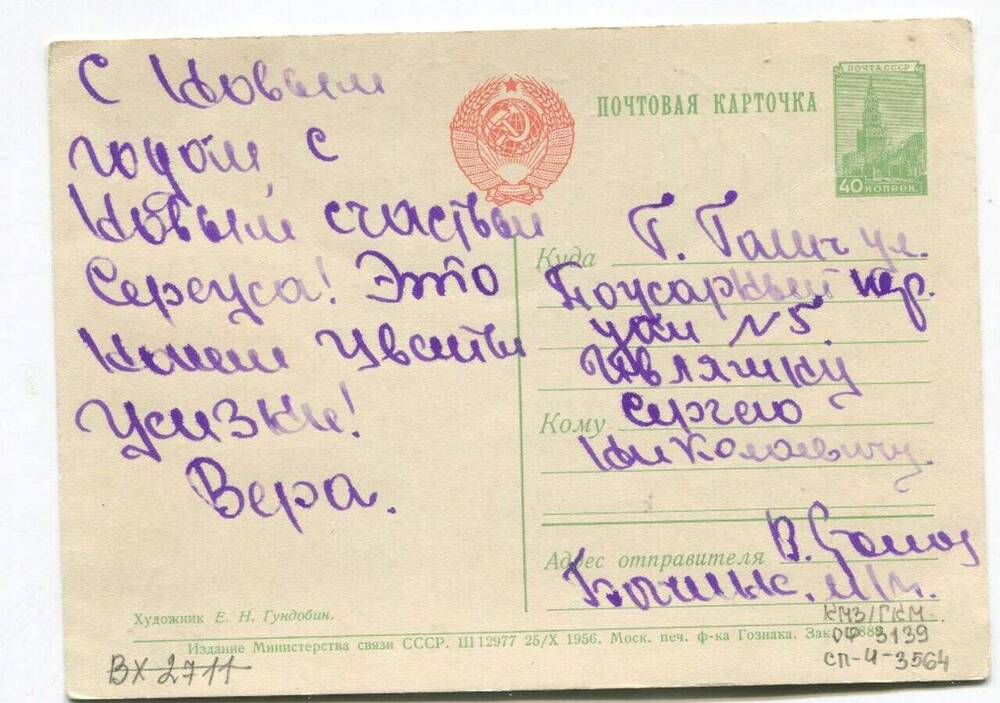 С Новым
годом, с
Новым счастьем
Сергуса! Это
Вера.
ПОЧТОВАЯ КАРТОЧКА
ПОЧТА СССР
40 КОПЕЕК
Куда Г. Галич ул.
пер.
№5
Ивляшку
Кому Сергею
Николаевичу.
Адрес отправителя В.
Художник Е. Н. Гундобин.
Издание Министерства связи СССР. Ш12977 25/X 1956. Моск. печ. ф-ка Гознака. Зак.
ВХ 2711
КМЗ/ГКМ
ОФ 3139
СП-И-3564